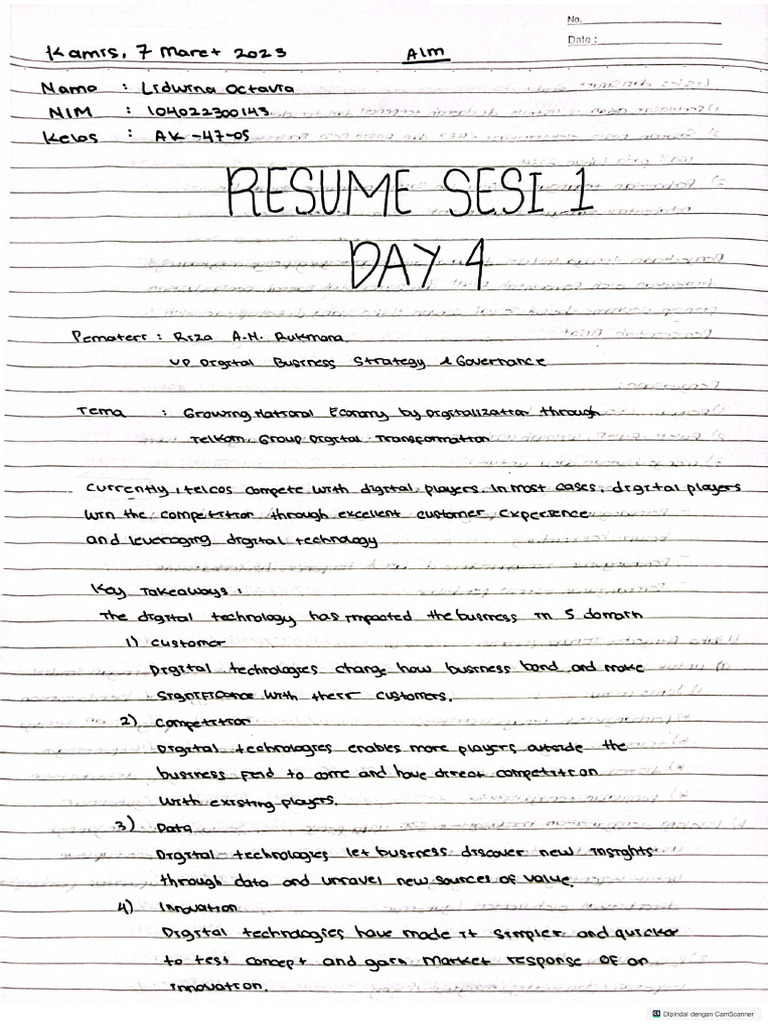 No.
Date :
Kamis, 7 Maret 2023 Alm
Nama : Lidwina Octavia
NIM : 104022300143
Kelas : AK-47-05
RESUME SESI 1
DAY 4
Pemateri : Riza A.H. Rukmana
VP Digital Business Strategy & Governance
Tema : Growing National Economy by Digitalization through
Telkom Group Digital Transformation
Currently, telcos compete with digital players. In most cases, digital players
win the competition through excellent customer experience
and leveraging digital technology
Key Takeaways :
The digital technology has impacted the business in 5 domain
1) Customer
Digital technologies change how business bond and make
significance with their customers.
2) Competition
Digital technologies enables more players outside the
business field to come and have direct competition
with existing players.
3) Data
Digital technologies let business discover new insights
through data and unravel new sources of value.
4) Innovation
Digital technologies have made it simpler and quicker
to test concept and gain market response of an
innovation.
Dipindai dengan CamScanner